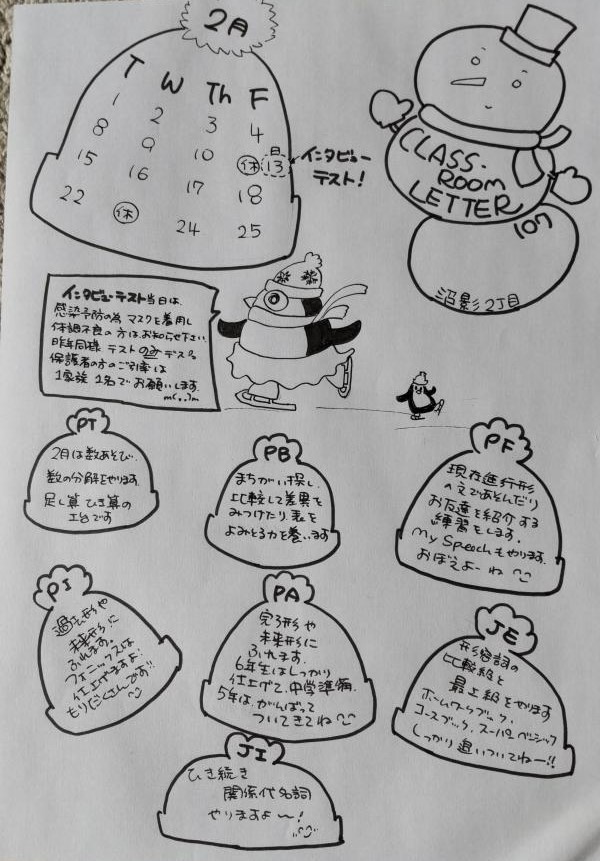 2月
T W Th F
1 2 3 4
8 9 10 休 日 13
15 16 17 18
22 休 24 25
インタビュー
テスト!
CLASS-
ROOM
LETTER
107
沼影2丁目
インタビューテスト当日は、
感染予防の為マスクを着用し
体調不良の方はお知らせ下さい。
昨年同様テストのみデス。
保護者の方のご引率は
1家族1名でお願いします。
m(..)m
PT
2月は数あそび。
数の分解をやります。
足し算ひき算の
土台です
PB
まちがい探し。
比較して差異を
みつけたり、表を
よみとる力を養います
PF
現在進行形
の文であそんだり
お友達を紹介する
練習をします。
My Speechもやります。
おぼえよーね
PI
過去形や
未来形に
ふれます。
フォニックスは
仕上げますよ!
もりだくさんです!!
PA
完了形や
未来形に
ふれます。
6年生はしっかり
仕上げて、中学準備。
5年は、がんばって
ついてきてね
JE
形容詞の
比較級と
最上級をやります
ホームワークブック、
コースブック、スーパーベーシック
しっかり追いついてねー!!
JI
ひき続き
関係代名詞
やりますよ〜!